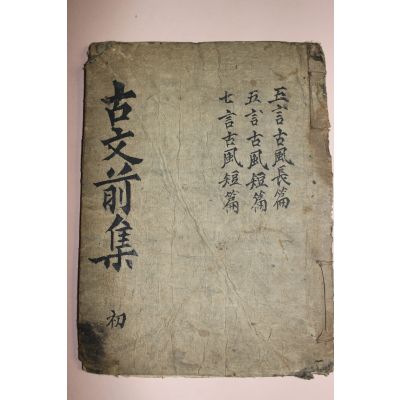 五言古風長篇
五言古風短篇
七言古風短篇
古文前集
初